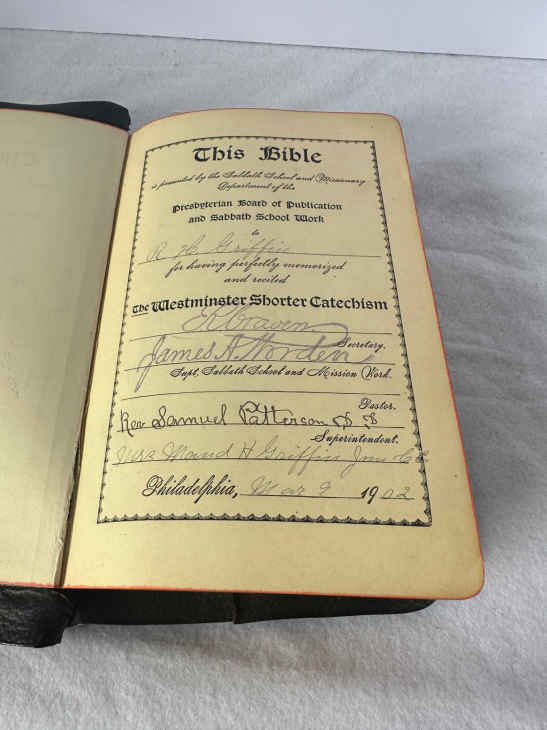 This Bible
is presented by the Sabbath School and Missionary
Department of the
Presbyterian Board of Publication
and Sabbath School Work
to
R. H. Griffin
for having perfectly memorized
and recited
The Westminster Shorter Catechism
E R Craven
Secretary.
James A. Worden
Supt. Sabbath School and Mission Work.
Pastor.
Rev Samuel Patterson D D
Superintendent.
Mrs Maud H Griffin
Philadelphia, Mar 9 1902